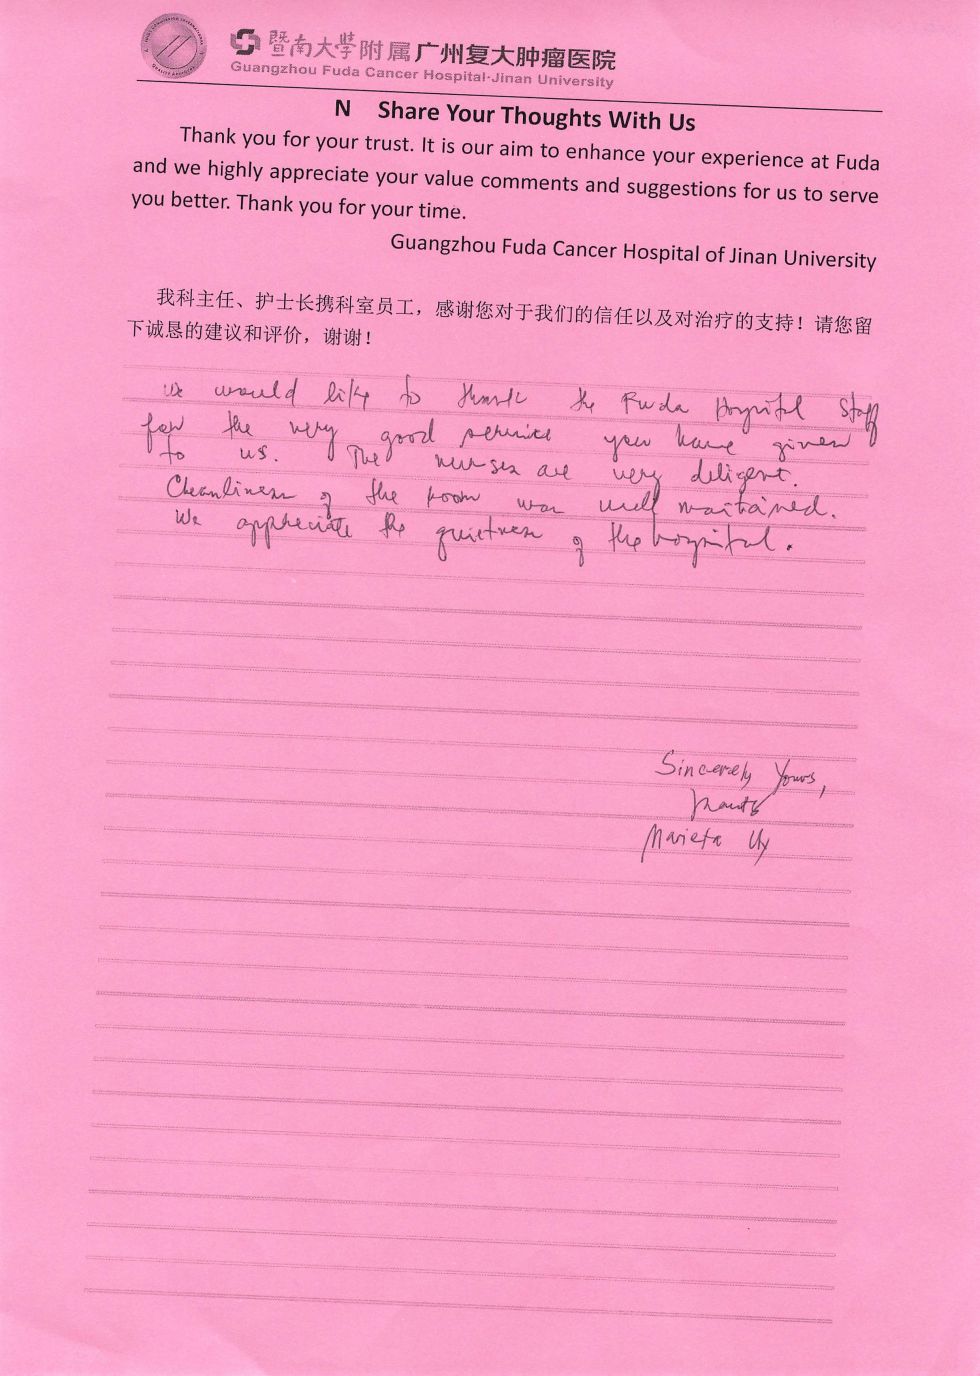 暨南大學附属广州复大肿瘤医院
Guangzhou Fuda Cancer Hospital·Jinan University
N Share Your Thoughts With Us
Thank you for your trust. It is our aim to enhance your experience at Fuda
and we highly appreciate your value comments and suggestions for us to serve
you better. Thank you for your time.
Guangzhou Fuda Cancer Hospital of Jinan University
我科主任、护士长携科室员工，感谢您对于我们的信任以及对治疗的支持！请您留
下诚恳的建议和评价，谢谢！
We would like to thank the Fuda Hospital Staff
for the very good service you have given
to us. The nurses are very diligent.
Cleanliness of the room was well maitained.
We appreciate the quietness of the hospital.
Sincerely Yours,
Marieta Uy